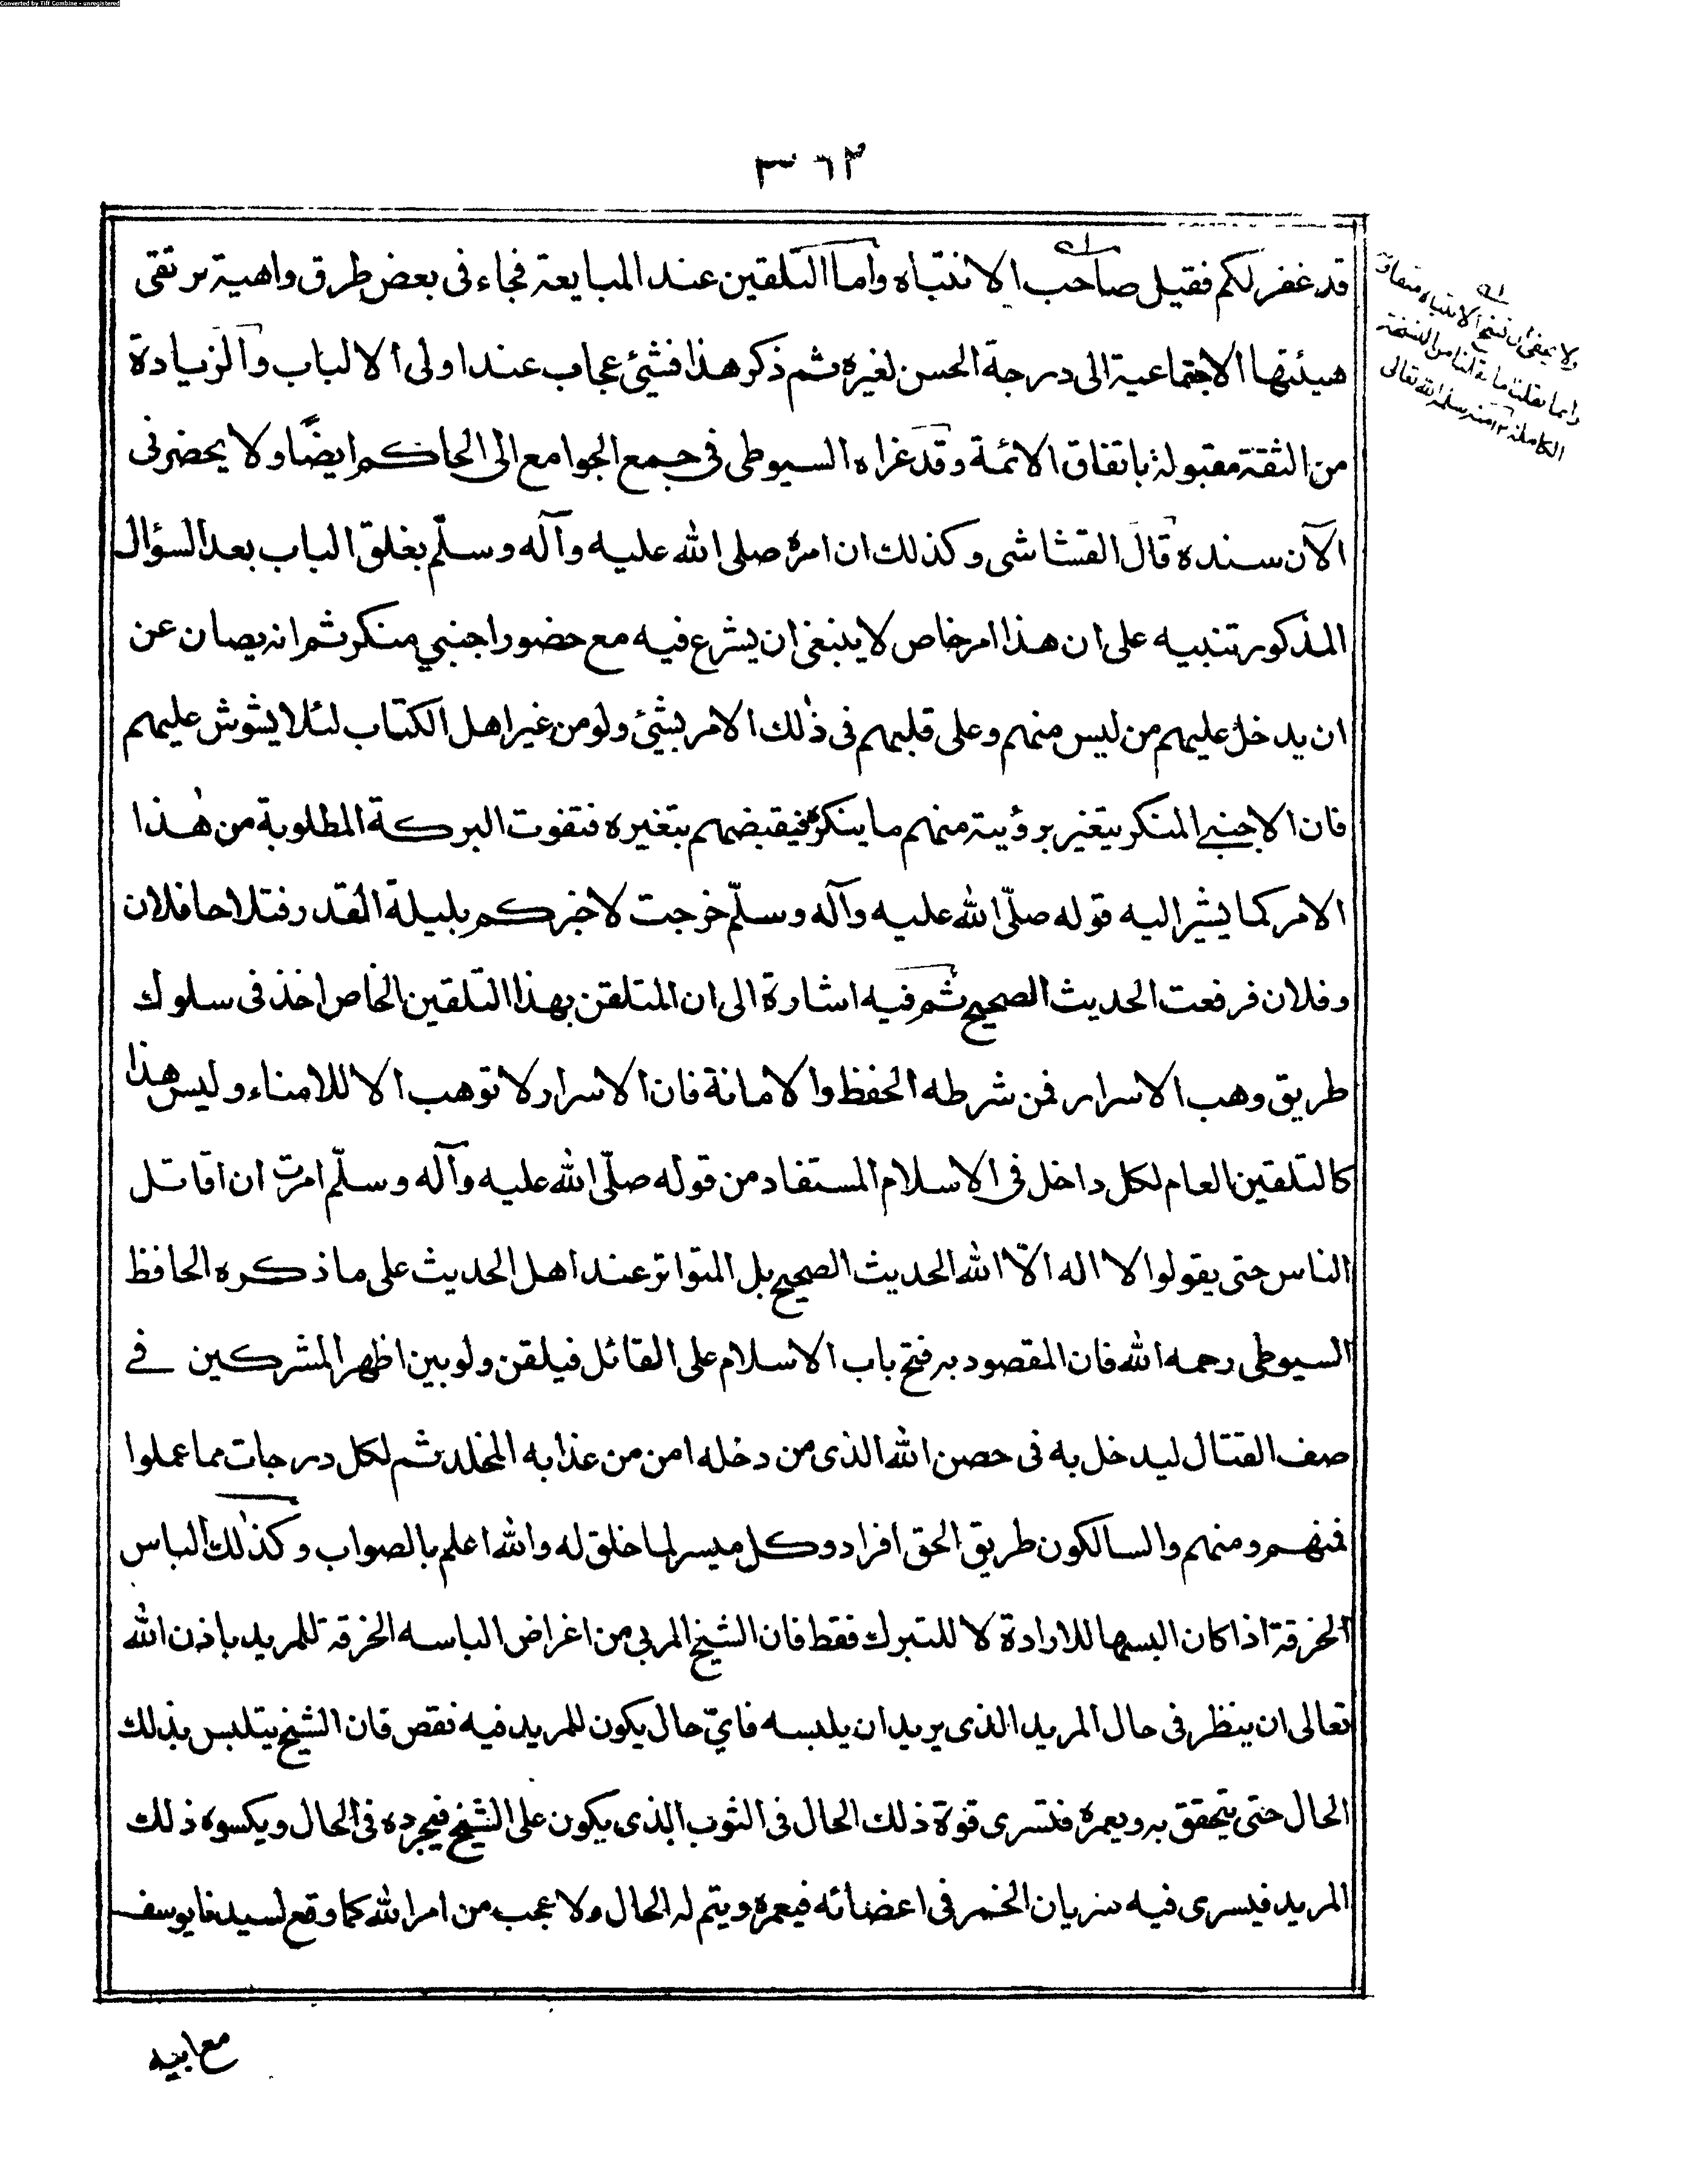 Converted by Tiff Combine - unregistered
٣٦٣
قد غفر لكم فقيل صاحب الانتباه واما التلقين عند المبايعة فجاء فى بعض طرق واهية ترتقى
هيئتها الاجتماعية الى درجة الحسن لغيره ثم ذكر هذا فشئ عجاب عند اولى الالباب والزيادة
من الثقة مقبولة باتفاق الائمة وقد عزاه السيوطى فى جمع الجوامع الى الحاكم ايضًا ولا يحضرنى
الآن سنده قال القشاشى وكذلك ان امره صلى الله عليه وآله وسلّم بغلق الباب بعد السؤال
المذكور تنبيه على ان هذا امر خاص لا ينبغى ان يشرع فيه مع حضور اجنبي منكر ثم انه يصان عن
ان يدخل عليهم من ليس منهم وعلى قلبهم فى ذلك الامر بشئ ولو من غير اهل الكتاب لئلا يشوش عليهم
فان الاجنبي المنكر يتغير برؤية منهم ما ينكره فيقبضهم بتغيره فتفوت البركة المطلوبة من هذا
الامر كما يشير اليه قوله صلّى الله عليه وآله وسلّم خرجت لاخبركم بليلة القدر فتلاحا فلان
وفلان فرفعت الحديث الصحيح ثم فيه اشارة الى ان المتلقن بهذا التلقين الخاص اخذ فى سلوك
طريق وهب الاسرار فمن شرطه الحفظ والامانة فان الاسرار لا توهب الا للامناء وليس هذا
كالتلقين العام لكل داخل فى الاسلام المستفاد من قوله صلّى الله عليه وآله وسلّم امرت ان اقاتل
الناس حتى يقولوا لا اله الّا الله الحديث الصحيح بل المتواتر عند اهل الحديث على ما ذكره الحافظ
السيوطى رحمه الله فان المقصود به فتح باب الاسلام على القائل فيلقن ولو بين اظهر المشركين فى
صف القتال ليدخل به فى حصن الله الذى من دخله امن من عذابه المخلد ثم لكل درجات مما عملوا
فمنهم ومنهم والسالكون طريق الحق افراد وكل ميسر لما خلق له والله اعلم بالصواب وكذلك الباس
الخرقة اذا كان البسها للارادة لا للتبرك فقط فان الشيخ المربى من اغراض الباسه الخرقة للمريد باذن الله
تعالى ان ينظر فى حال المريد الذى يريد ان يلبسه فايّ حال يكون للمريد فيه نقص فان الشيخ يتلبس بذلك
الحال حتى يتحقق به ويعمره فتسرى قوة ذلك الحال فى الثوب الذى يكون على الشيخ فيجرده فى الحال ويكسوه ذلك
المريد فيسرى فيه سريان الخمر فى اعضائه فيعمره ويتم له الحال ولا عجب من امر الله كما وقع لسيدنا يوسف
مع ابيه
ولا يخفى ان نسخ الانتباه متفاوتة
وانما نقلت ما نقلنا من النسخة
الكاملة ١٢ منه سلمه الله تعالى